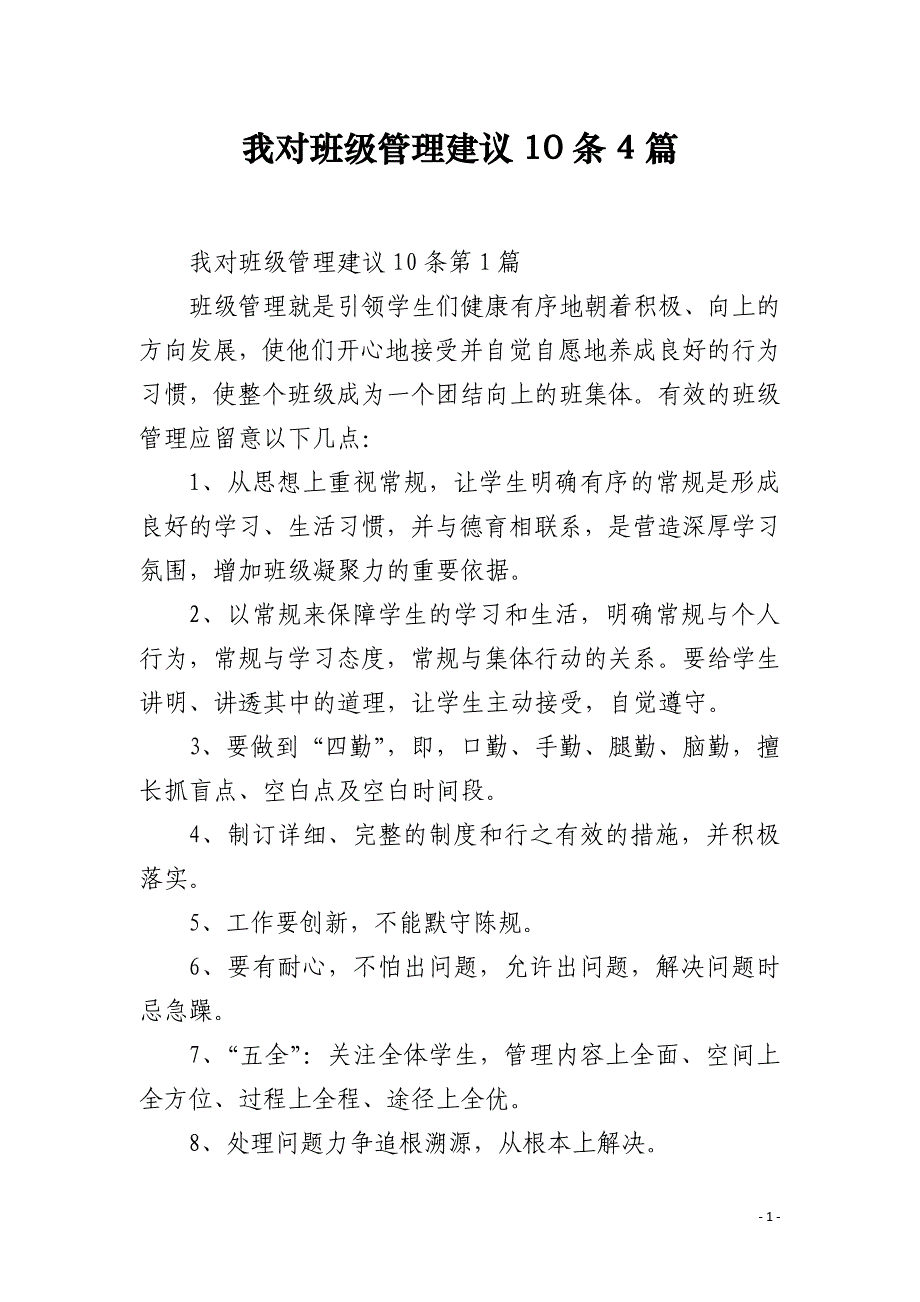 我对班级管理建议 10 条 4 篇
我对班级管理建议 10 条第 1 篇
班级管理就是引领学生们健康有序地朝着积极、向上的
方向发展，使他们开心地接受并自觉自愿地养成良好的行为
习惯，使整个班级成为一个团结向上的班集体。有效的班级
管理应留意以下几点：
1、从思想上重视常规，让学生明确有序的常规是形成
良好的学习、生活习惯，并与德育相联系，是营造深厚学习
氛围，增加班级凝聚力的重要依据。
2、以常规来保障学生的学习和生活，明确常规与个人
行为，常规与学习态度，常规与集体行动的关系。要给学生
讲明、讲透其中的道理，让学生主动接受，自觉遵守。
3、要做到“四勤”，即，口勤、手勤、腿勤、脑勤，擅
长抓盲点、空白点及空白时间段。
4、制订详细、完整的制度和行之有效的措施，并积极
落实。
5、工作要创新，不能默守陈规。
6、要有耐心，不怕出问题，允许出问题，解决问题时
忌急躁。
7、“五全”：关注全体学生，管理内容上全面、空间上
全方位、过程上全程、途径上全优。
8、处理问题力争追根溯源，从根本上解决。
- 1 -